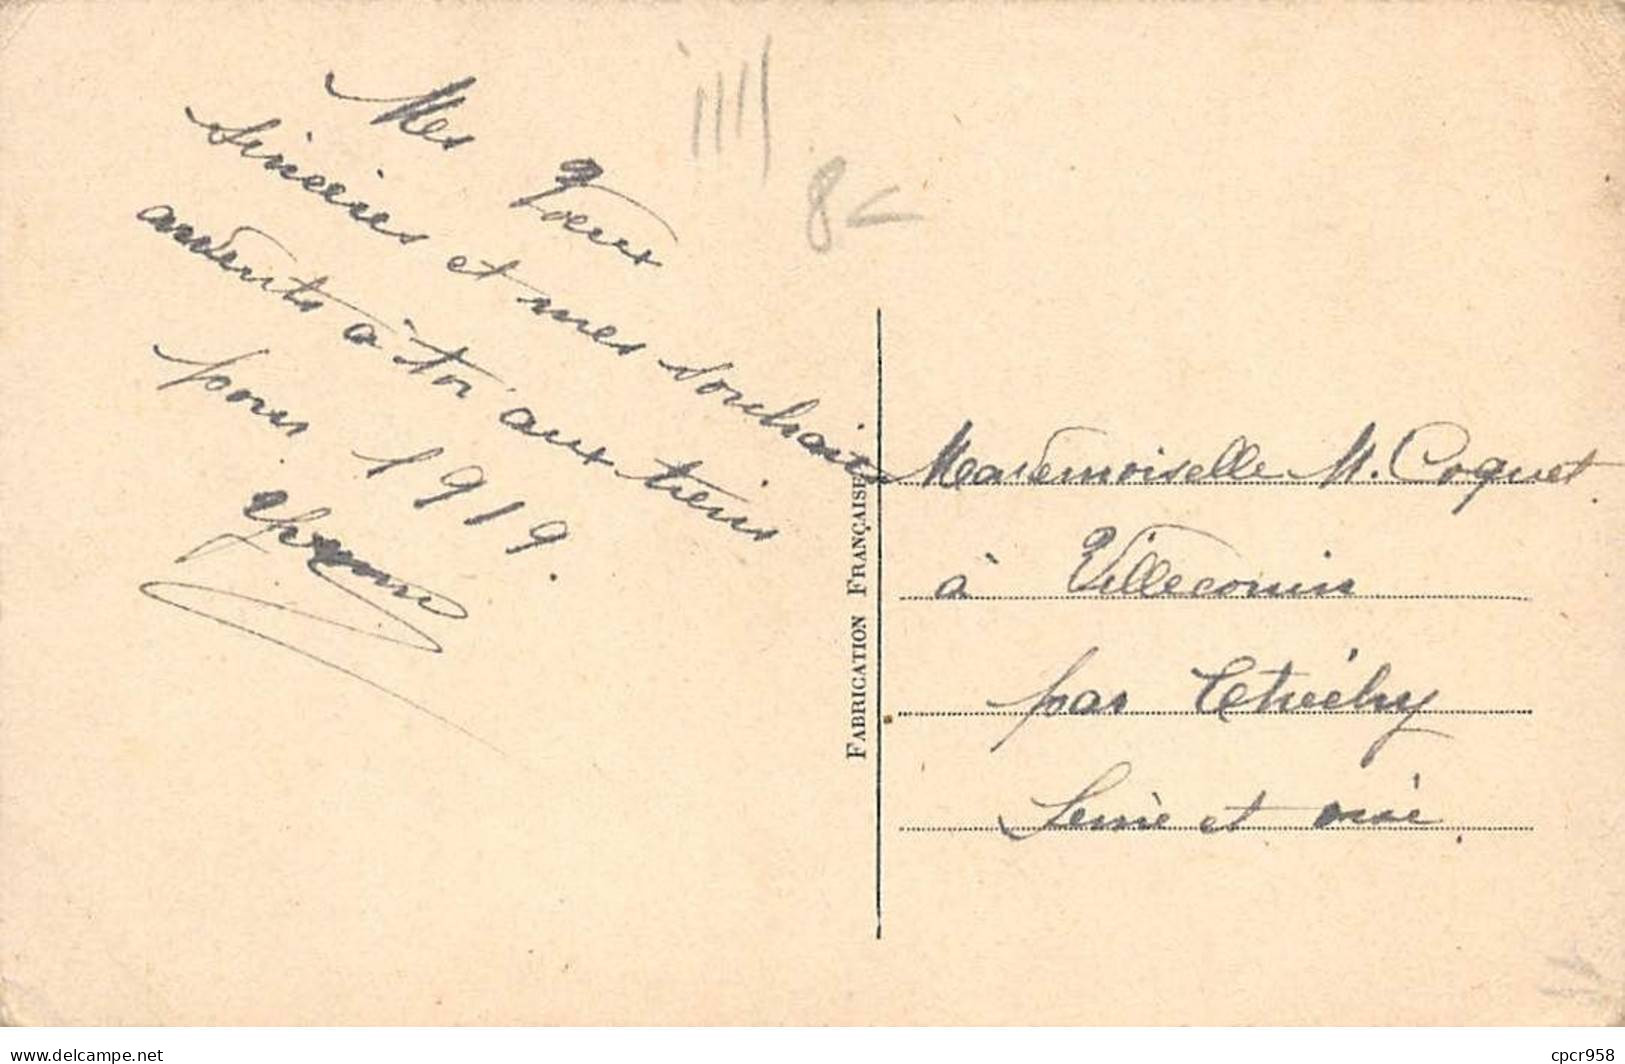 Mes Voeux
sincères et mes souhaits
ardents à toi aux tiens
pour 1919.
8
Mademoiselle M. Coquet
à Villeconin
par Etréchy
Seine et oise.
FABRICATION FRANÇAISE
delcampe.net
cpcr958